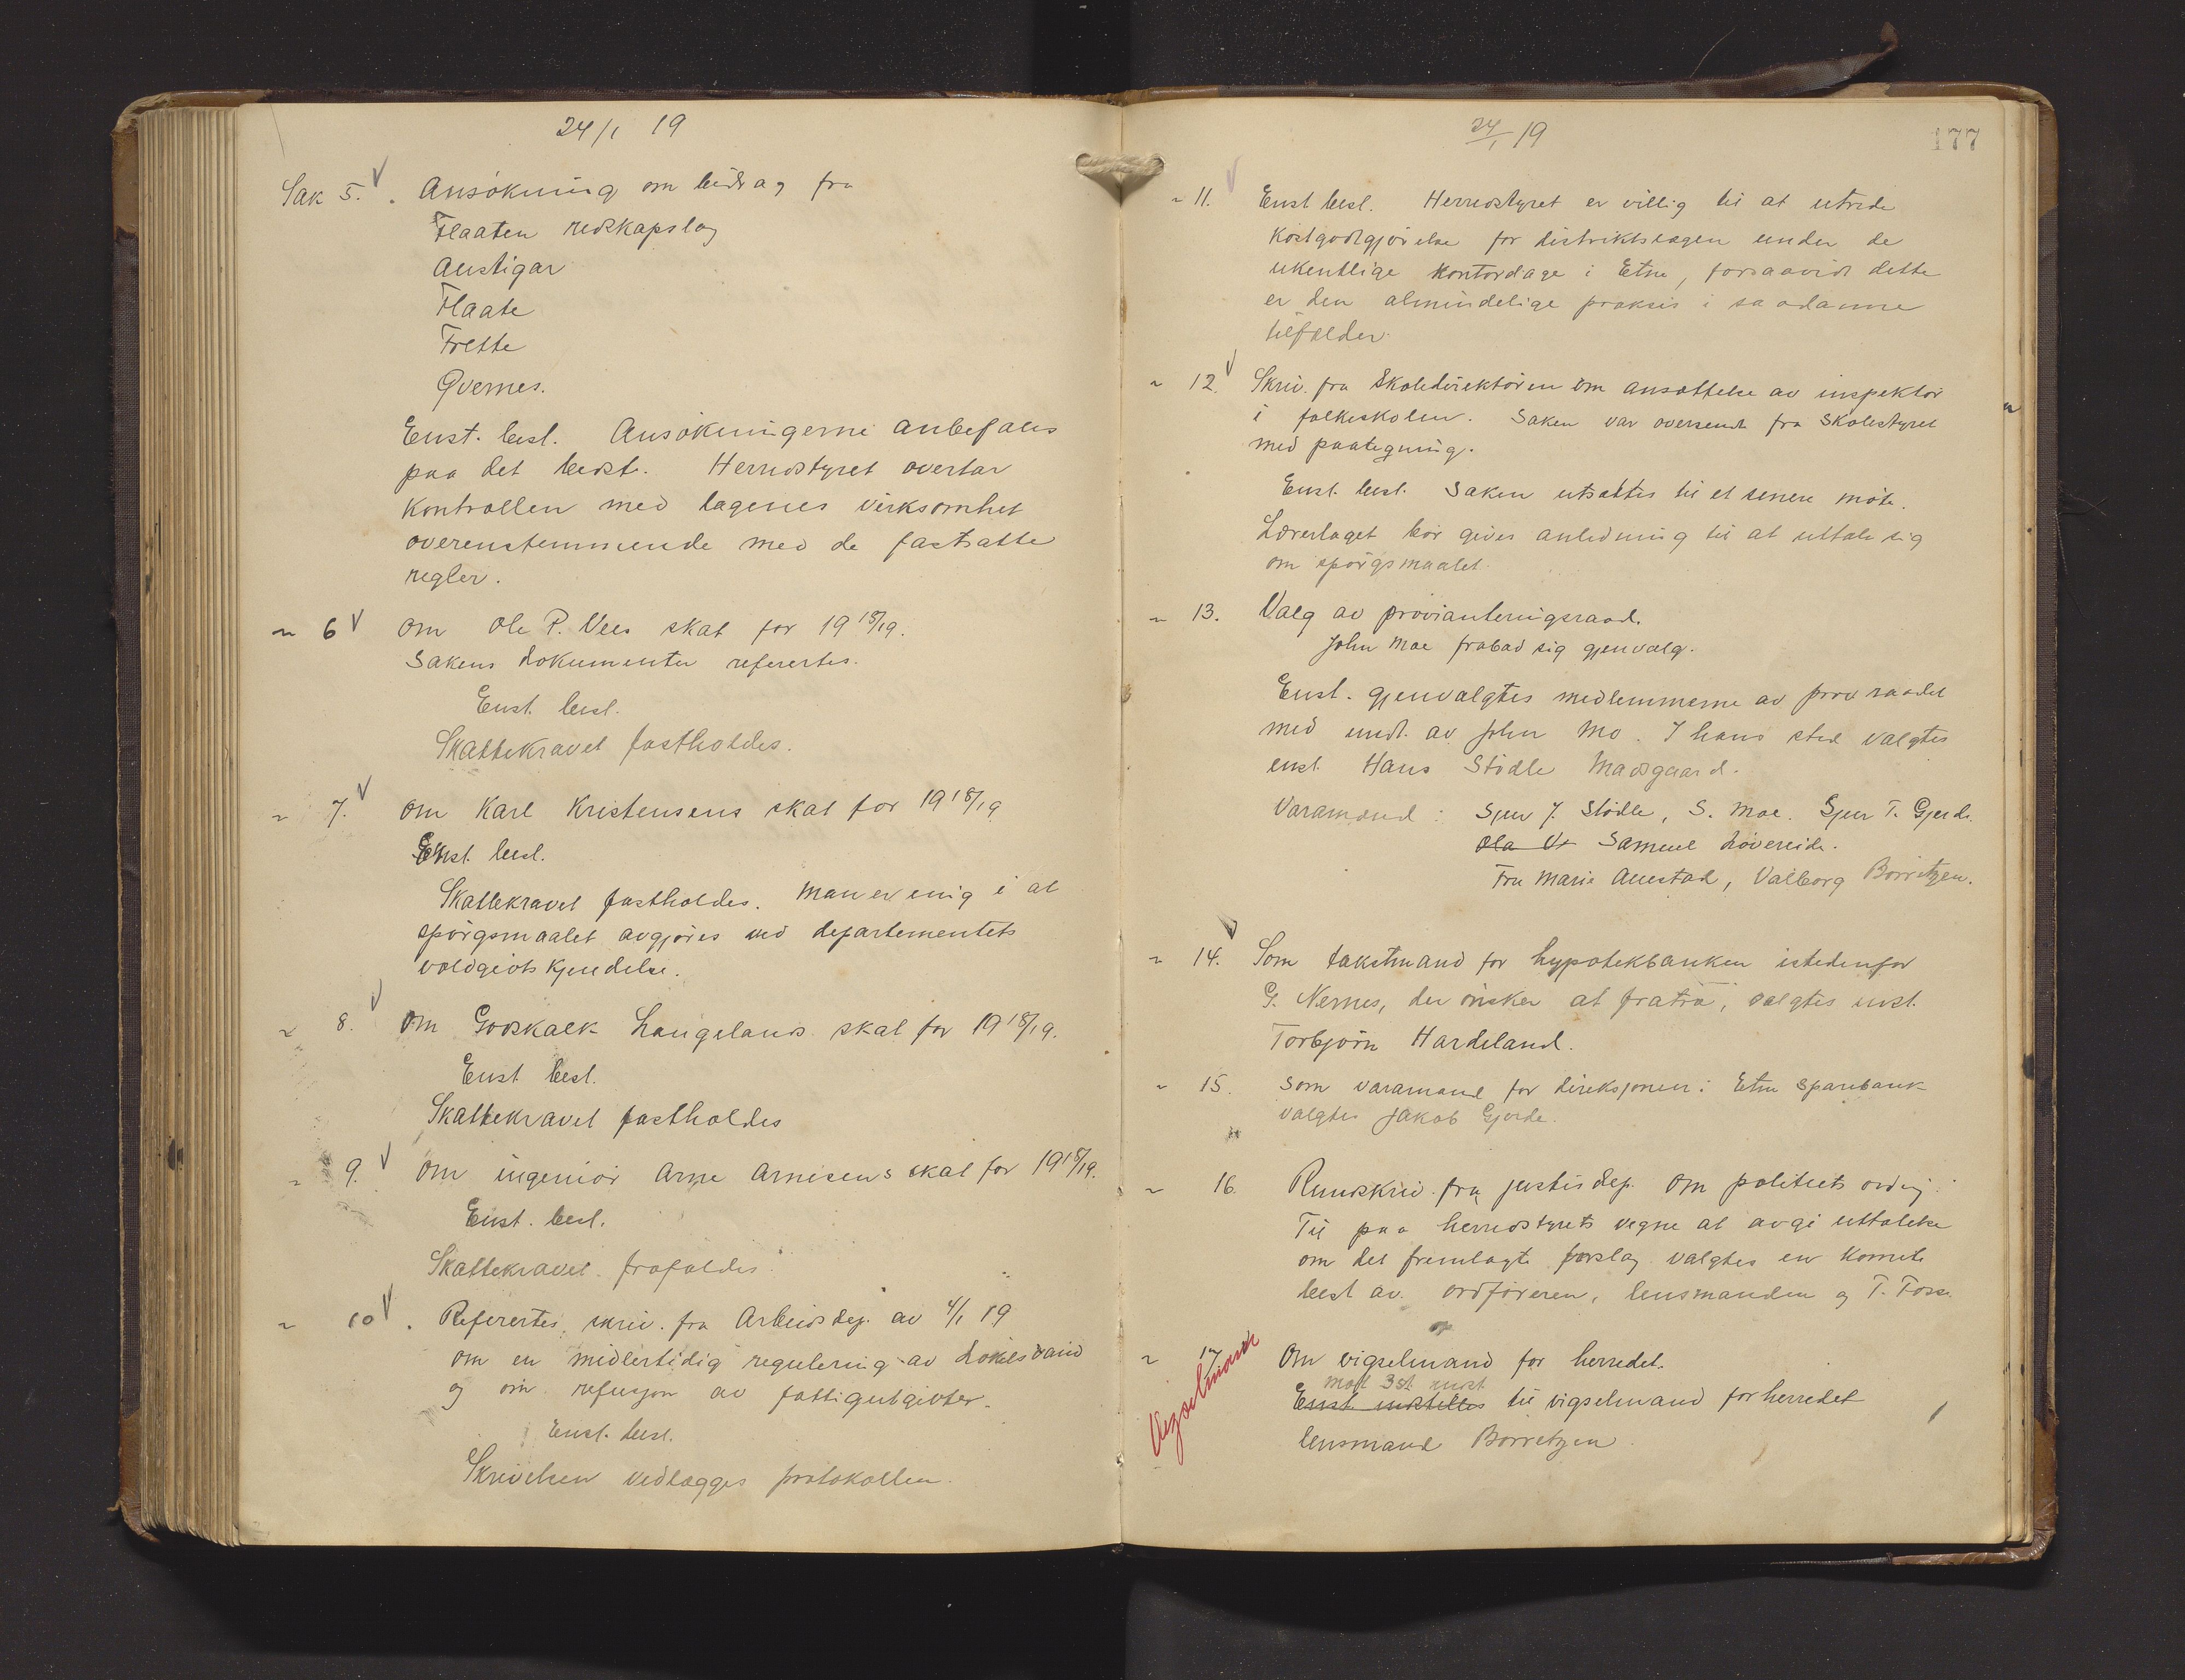 24/1 19
Sak 5. Ansøkning om bidrag fra
Flaaten redskapslag
Austigar
Flaate
Frette
Qvernes.
Enst. besl. Ansøkningerne anbefales
paa det bedste. Herredstyret overtar
kontrollen med lagenes virksomhet
overenstemmende med de fastsatte
regler.
" 6 Om Ole P. Vees skat for 1918/19.
Sakens dokumenter refertes.
Enst. besl.
Skattekravet fastholdes.
" 7. Om Karl Kristensens skat for 1918/19
Enst. besl.
Skattekravet fastholdes. Man er enig i at
spørgsmaalet avgjøres ved departementets
voldgiftskjendelse.
" 8. Om Godskalk Langelands skat for 1918/19.
Enst besl.
Skattekravet fastholdes
" 9. Om ingeniør Arne Arnesens skat for 1918/19.
Enst. besl.
Skattekravet frafaldes.
" 10. Refertes skriv. fra Arbeidsdep. av 4/1 19
om en midlertidig regulering av Løkelsvand
og om refusjon av fattigutgivter.
Enst. besl.
Skrivelsen vedlægges protokollen.
24/1 19
177
" 11. Enst besl. Herredstyret er villig til at utrede
kostgodtgjørelse for distriktslægen under de
ukentlige kontordage i Etne, forsaavidt dette
er den almindelige praksis i saadanne
tilfælder.
" 12. Skriv. fra Skoledirektøren om ansættelse av inspektør
i folkeskolen. Saken var oversendt fra Skolestyret
med paategning.
Enst. besl. Saken utsættes til et senere møte.
Lærerlaget bør gives anledning til at uttale sig
om spørgsmaalet.
" 13. Valg av provianteringsraad.
John Moe frabad sig gjenvalg.
Enst. gjenvalgtes medlemmerne av prov raadet
med undt. av John Mo. I hans sted valgtes
enst. Hans Stødle Madsgaard.
Varamænd: Sjur J. Stødle, S. Moe. Sjur T. Gjerde.
Ola V Samuel Løvereide.
Fru Marie Auestad, Valborg Børretzen.
" 14. Som takstmand for hypotekbanken istedenfor
G. Nernes, der ønsker at fratræ, valgtes enst.
Torbjørn Hardeland.
" 15. Som varamand for direksjonen i Etne Sparebank
valgtes Jakob Gjerde.
" 16. Rundskriv. fra justisdep. om politiets ordng.
Til paa herredstyrets vegne at avgi uttalelse
om det fremlagte forslag valgtes en komite
best av. ordføreren, lensmanden og T. Fosse.
" 17 Om vigselmand for herredet.
mot 3 st. indst
Enst. indstilles til vigselmand for herredet
lensmand Børretzen.
Vigselmand